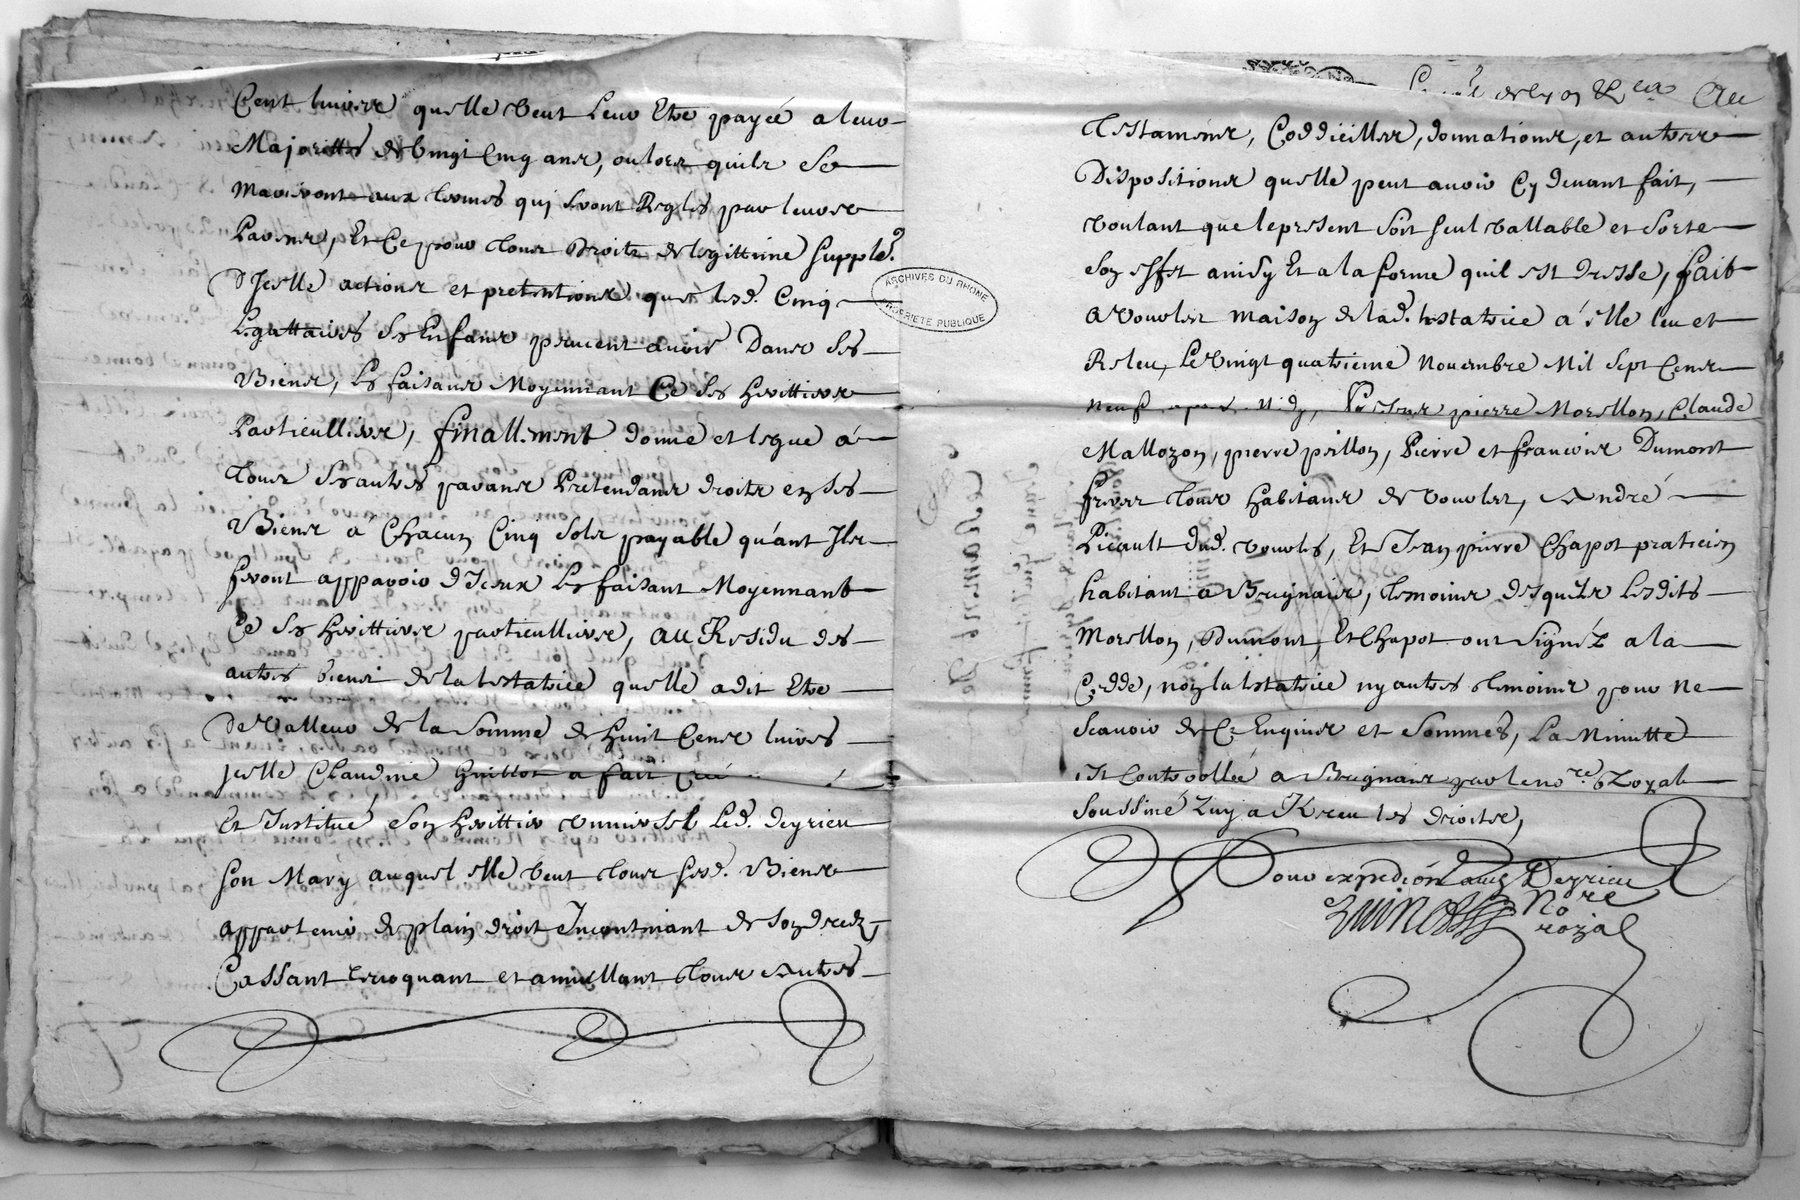 Cent livres quelle veut leur Etre payéé a leur
Majorittés de Vingt Cinq ans, ou lors quils Se
mariront aux termes qui seront Reglés par leurs
Parens, Et Ce pour tous Droits de legittime supplet.
d'Jcelle actions et pretentions que lesd. Cinq
Legattaires Ses Enfans peuvent avoir Dans Ses
Biens, les faisans Moyennant Ce Ses herittiers
Particulliers, finallement donne et legue á
tous Ses autres parans Prétendans droits en ses
Biens á Chacun Cinq Sols payable quánt Jls
feront apparoir d'Jceux les faisant Moyennant
Ce Ses herittiers particulliers, au Residu des
autres biens de la testatrice quelle a dit Etre
de Valleur de la Somme de huit Cens livres
jcelle Claudine Guillot a fait Créé
Et Institué Son herittier Vniversel led. deyrieu
son Mary auquel elle Veut tous sesd. Biens
appartenir de plain droit Incontinant de Son decedz,
Cassant revoquant et annullant tous Autres
ARCHIVES DU RHONE
PROPRIETE PUBLIQUE
Au
testamens, Coddicilles, donnations, et autres
Dispositions quelle peut avoir Cy devant fait,
voulant que le present Soit seul vallable et Sorte
Son effet ainsy Et a la forme quil est dressé, fait
A Vourles maison de lad. testatrice á elle leu et
Releu, Le Vingt quatrieme Novembre Mil Sept Cens
Neuf apres Midy, Presens pierre Morellon, Claude
Mallozon, pierre peillon, Pierre et francois Dumont
freres tous habitans de Vourles, André
Picault dud. Vourles, Et Jean pierre Chapot praticien
habitant a Brignais, temoins desquels lesdits
Morellon, Dumont, Et Chapot ont Signéz a la
Cedde, non la testatrice ny autres temoins pour ne
Scavoir de Ce Enquis et Sommés, La Minutte
Est Controollée a Brignais par le nore. Royal
Soussiné Quy a Receu les droits,
Pour expedion Deyrieu
Nore
royal